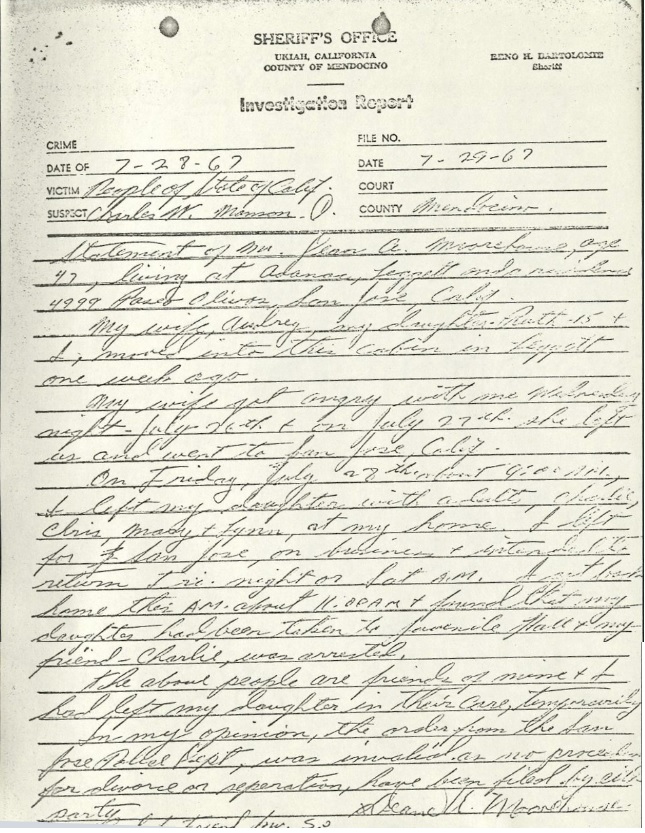 SHERIFF'S OFFICE
UKIAH, CALIFORNIA
COUNTY OF MENDOCINO
RENO H. BARTOLOMIE
Sheriff
Investigation Report
CRIME
FILE NO.
DATE OF 7-28-67
DATE 7-29-67
VICTIM People of State of Calif.
COURT
SUSPECT Charles W. Manson. (P)
COUNTY Mendocino.
Statement of Mr. Dean A. Moorehouse, age
47, living at Adanac, Leggett and a residence
4999 Paseo Olivos, San Jose, Calif.
My wife, Audrey, my daughter-Ruth-15 +
I, moved into this cabin in Leggett
one week ago.
My wife got angry with me Wednesday
night - July 26th + on July 27th. she left
us and went to San Jose, Calif.
On Friday, July 28th about 9:00 AM,
I left my daughter with adults, Charlie,
Chris, Mary + Lynn, at my home. I left
for San Jose, on business + intended to
return Fri. night or Sat A.M. I got back
home this A.M. about 11:00AM + found that my
daughter had been taken to Juvenile Hall + my
friend - Charlie, was arrested.
The above people are friends of mine + I
had left my daughter in their care, temporarily
In my opinion, the order from the San
Jose Police Dept, was invalid as no
for divorce or seperation, have been filed by
party